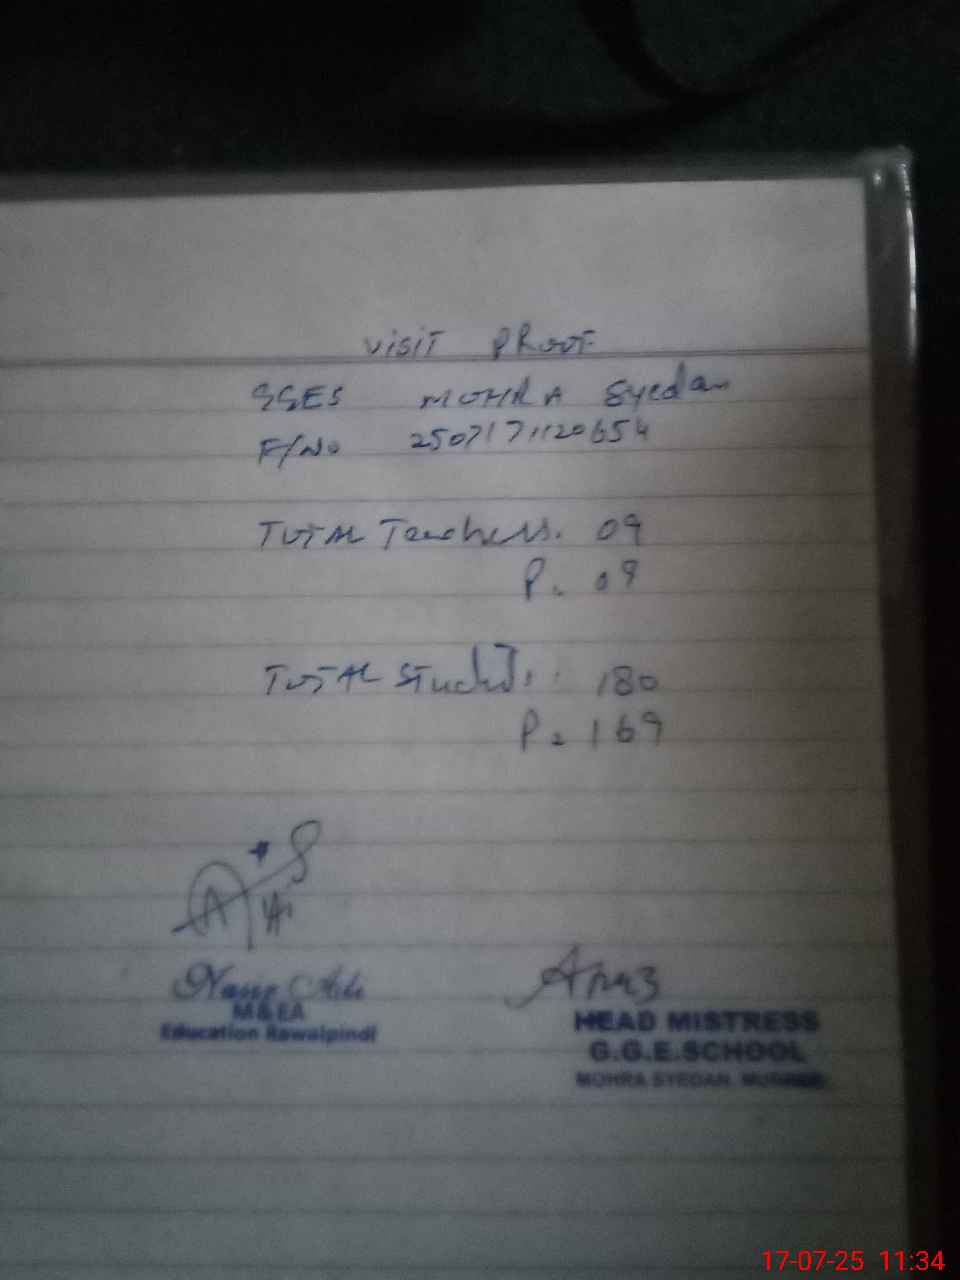 VISIT PROOF
GGES MOHRA Syedan
F/No 2507171120654
TOTAL Teachers. 09
P. 09
TOTAL Students. 180
P = 169
Nasir Ali
M&EA
Education Rawalpindi
HEAD MISTRESS
G.G.E.SCHOOL
MOHRA SYEDAN, MURREE
17-07-25 11:34